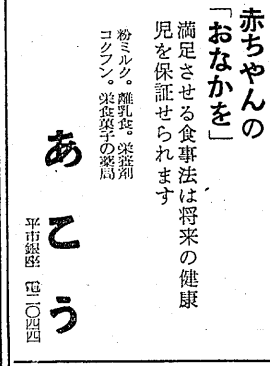 赤ちゃんの
「おなかを」
満足させる食事法は将来の健康
児を保証せられます
粉ミルク。離乳食。栄養剤
コクフン。栄食菓子の薬局
あこう
平市銀座 電二〇四四